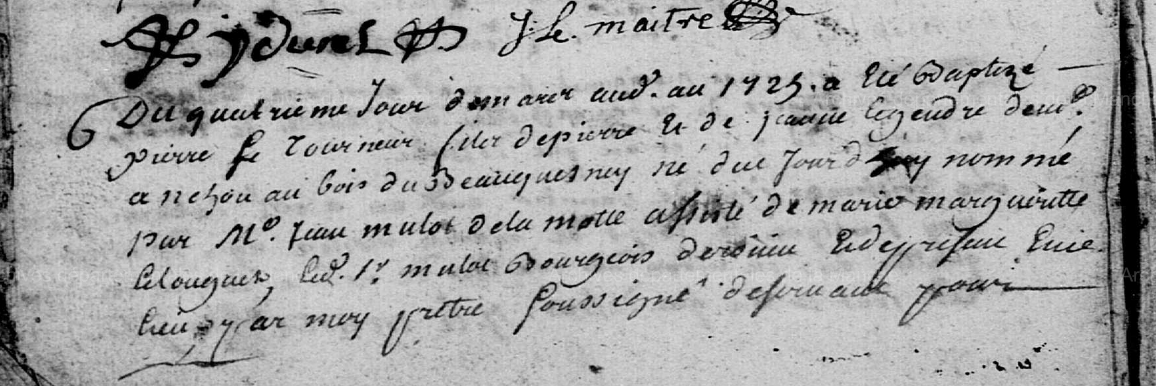 J durel J. le maitre
6 Du quatrieme Jour de mars aud. an 1725. a Eté Baptizé
pierre le Tourneur fils de pierre Et de jeanne legendre dem.
a nehou au bois du Beauquesney né du Jourd huy nommé
par M.e Jean mulot de la motte assisté de marie margueritte
led. Sr. mulot Bourgeois de Et de present En ce
lieu par moy prêtre soussigné desservant pour